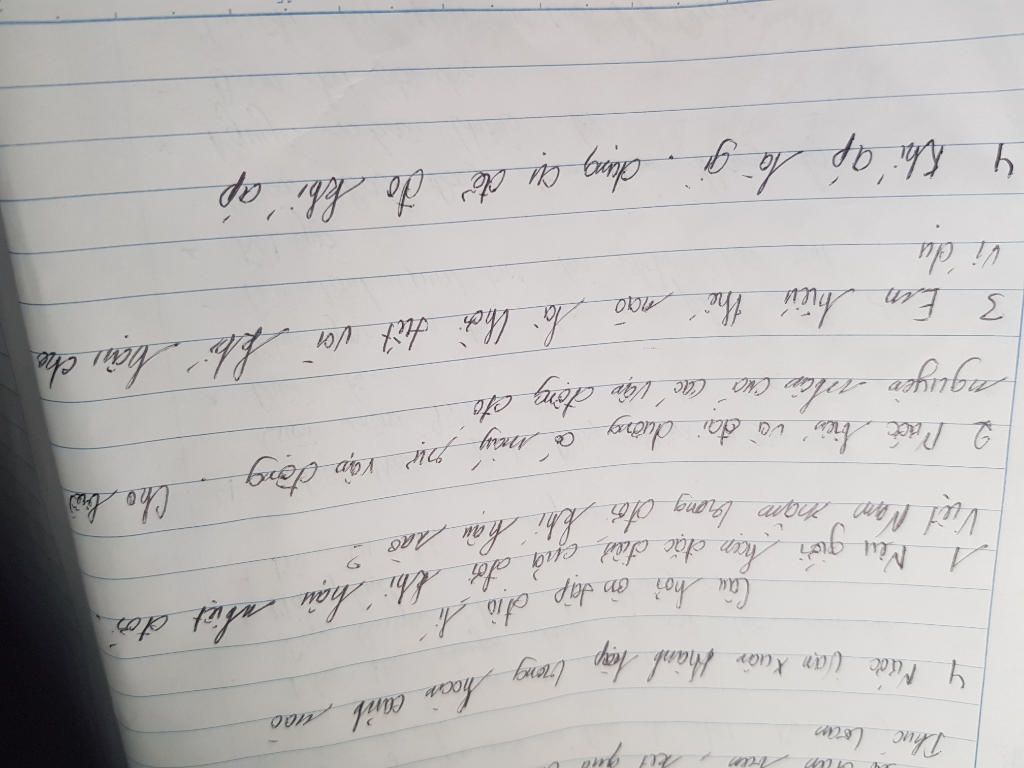 Thục Loan
4 Nước Vạn Xuân thành lập trong hoàn cảnh nào
Câu hỏi ôn tập địa lí
1 Nêu giới hạn đặc điểm của đới khí hậu nhiệt đới.
Việt Nam nằm trong đới khí hậu nào ?
2 Nước biển và đại dương có mấy sự vận động. Cho biết
nguyên nhân của các vận động đó
3 Em hiểu thế nào là thời tiết và khí hậu cho
ví dụ
4 Khí áp là gì. dụng cụ để đo khí áp